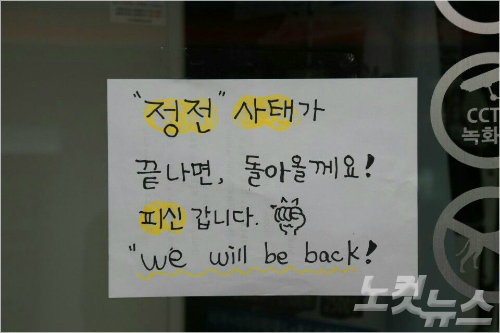 "정전" 사태가
끝나면, 돌아올께요!
피신 갑니다.
"we will be back!
CCT
녹화
노컷뉴스